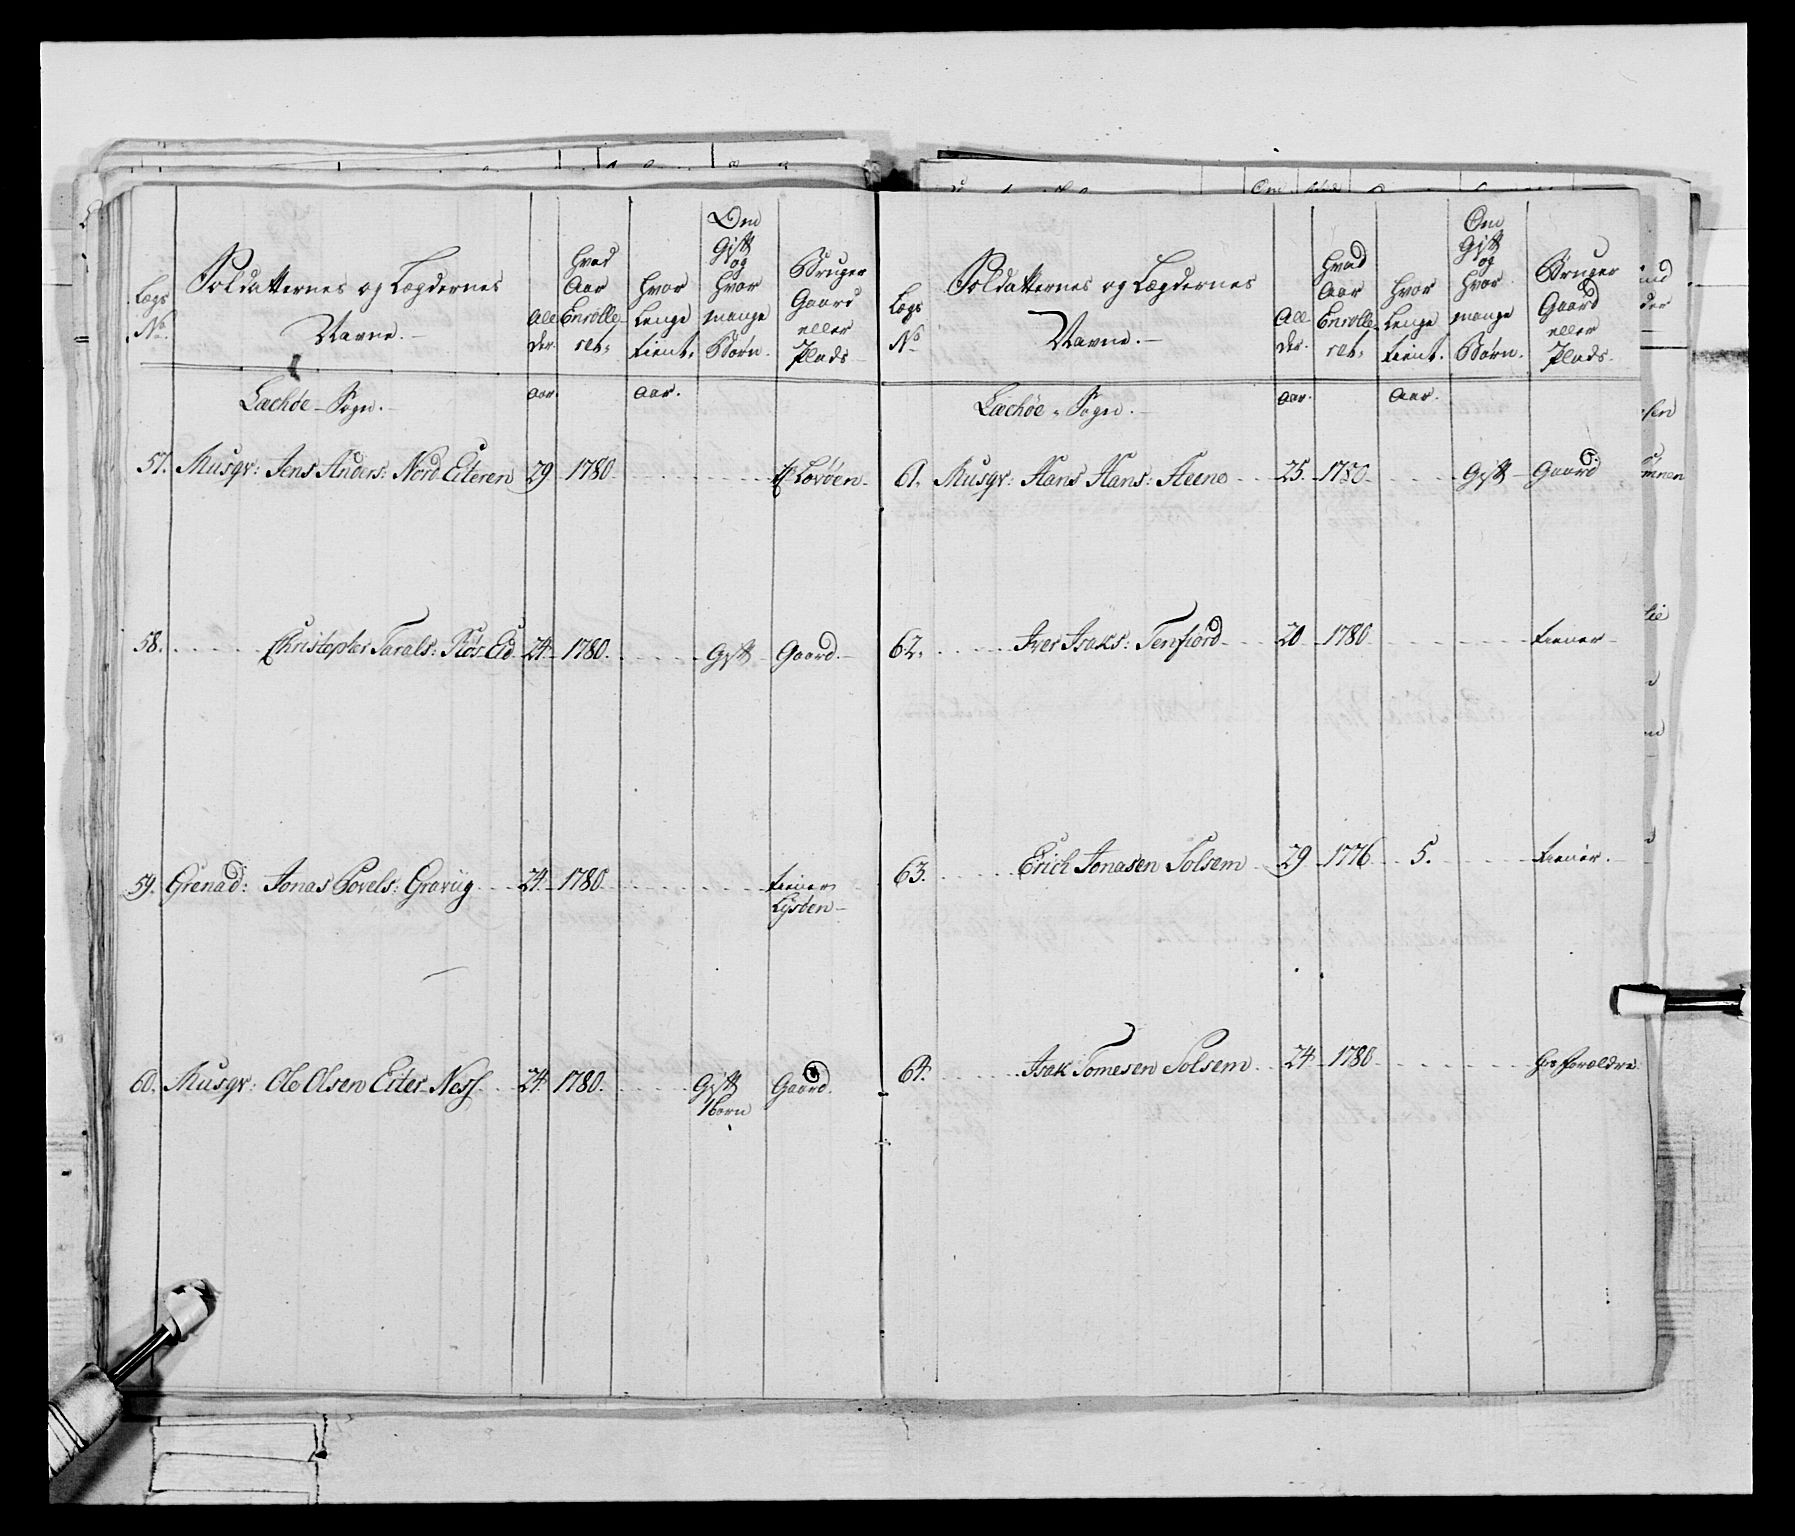 Lægs No.
Soldatternes og Lægdernes Navne.
Allder.
Hvad Aar Enrolleret.
Hvor Lenge tient.
Om Gift og Hvor mange Børn.
Bruger Gaard eller Plads.
Læchøe Sogn.
Aar. Aar.
57. Musqr: Jens Anders: Nord Eiteren 29 1780 Lovøen
58. Christopher Tarals: Røs Eid 24 1780. Gift Gaard.
59. Grenad: Jonas Povels: Gravüg 24 1780 tiener
Lysøen
60. Musqr: Ole Olsen Eiter Ness 24 1780. Gift Gaard.
1 Børn
Lægs No
Soldatternes og Lægdernes Navne.
Allder.
Hvad Aar Enrolleret.
Hvor Lenge tient.
Om Gift og Hvor mange Børn.
Bruger Gaard eller Plads.
Læchöe Sogn.
Aar. Aar.
61. Musqr: Hans Hans: Steene 25 1780 Gift Gaard
62. Iver Isaks: Tenfiord 20 1780 tiener
63. Erich Jonasen Solsem 29 1776 5. tiener.
64. Isak Tomesen Solsem 24 1780 hos forældre